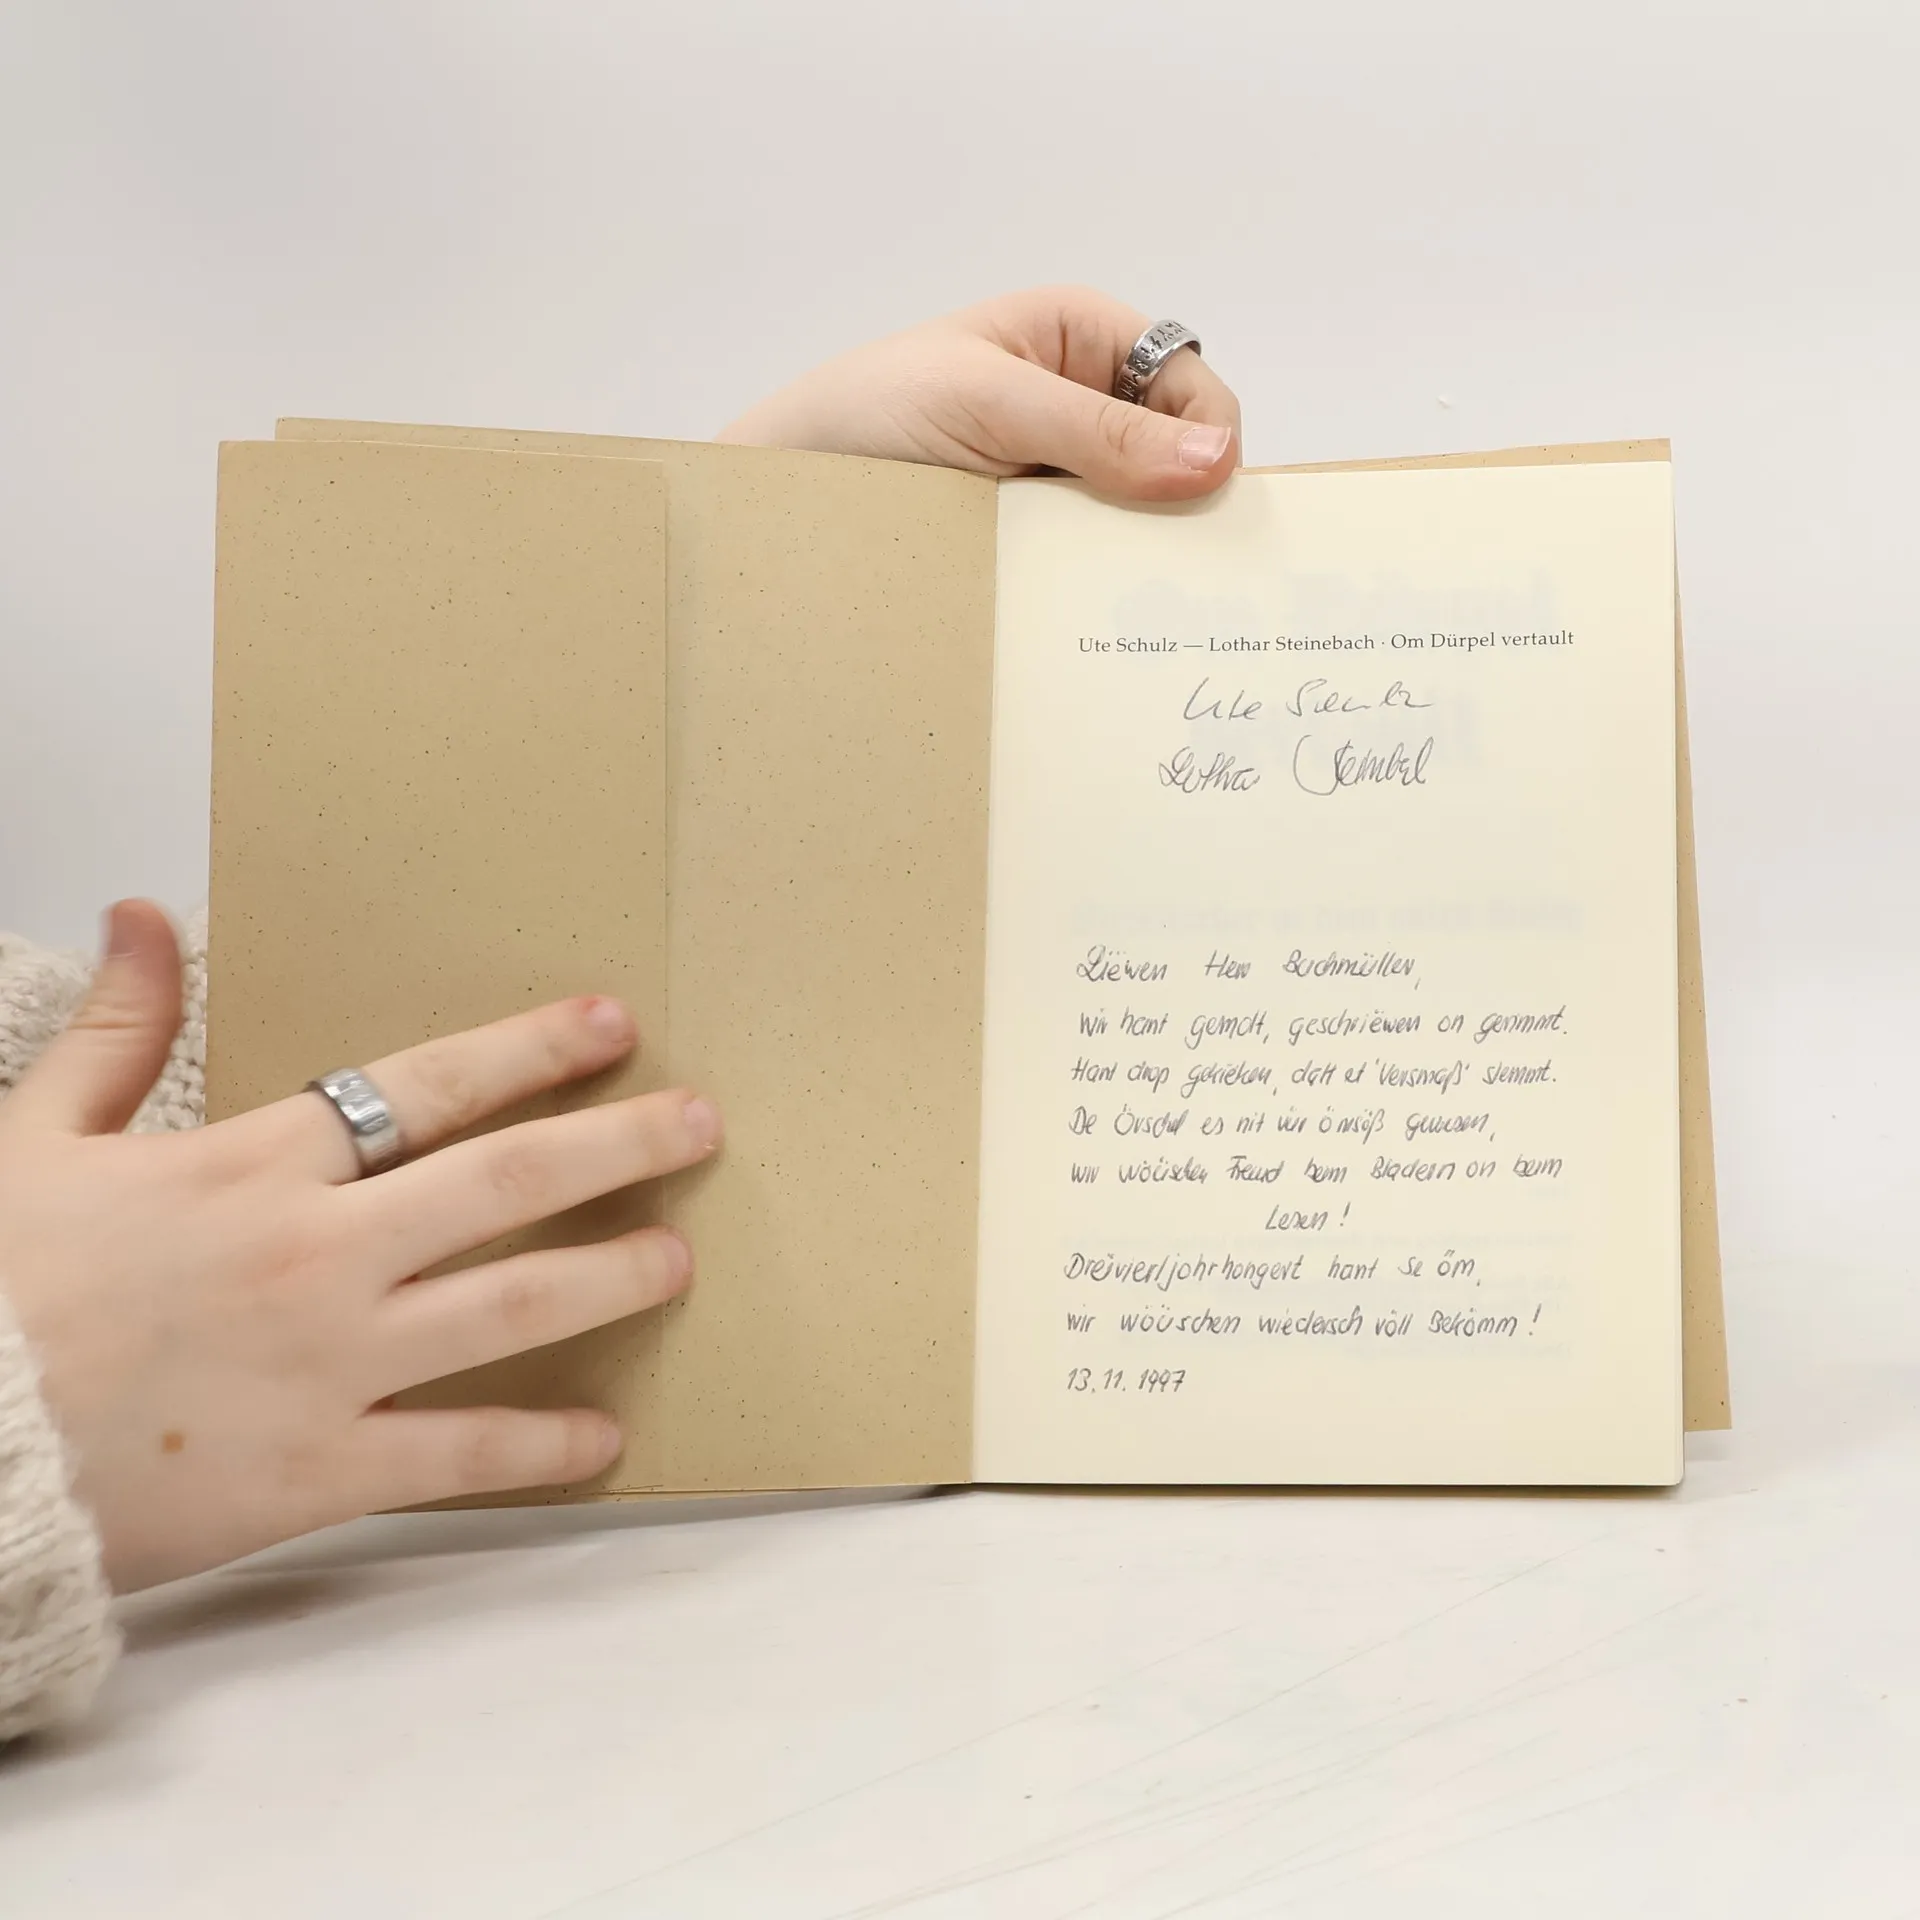 Ute Schulz — Lothar Steinebach · Om Dürpel vertault
Ute Schulz
Lothar
Liëwen Herr Bachmüller,
wir hant gemolt, geschriëwen on gerimmt.
Hant drop gekieken, datt et 'Versmaß' stemmt.
De Örschel es nit vür ömsöß gewesen,
wir wöüschen Freud beim Bladern on beim
Lesen!
Dreiviertljohrhongert hant Se öm,
wir wöüschen wiedersch völl Bekömm!
13.11.1997